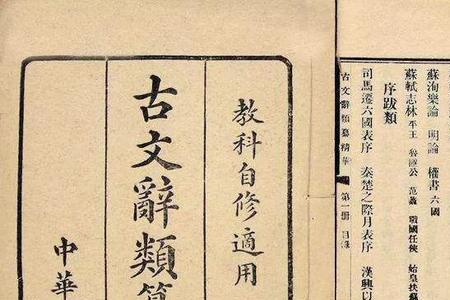 蘇洵樂論 明論 權書 六國
蘇軾志林 平王 魯隱公 范蠡 戰國任俠 始皇扶蘇
序跋類
司馬遷六國表序 秦楚之際月表序 漢興以
古文辭類纂精華 第一冊 目錄
教科自修適用
古文辭類
中華